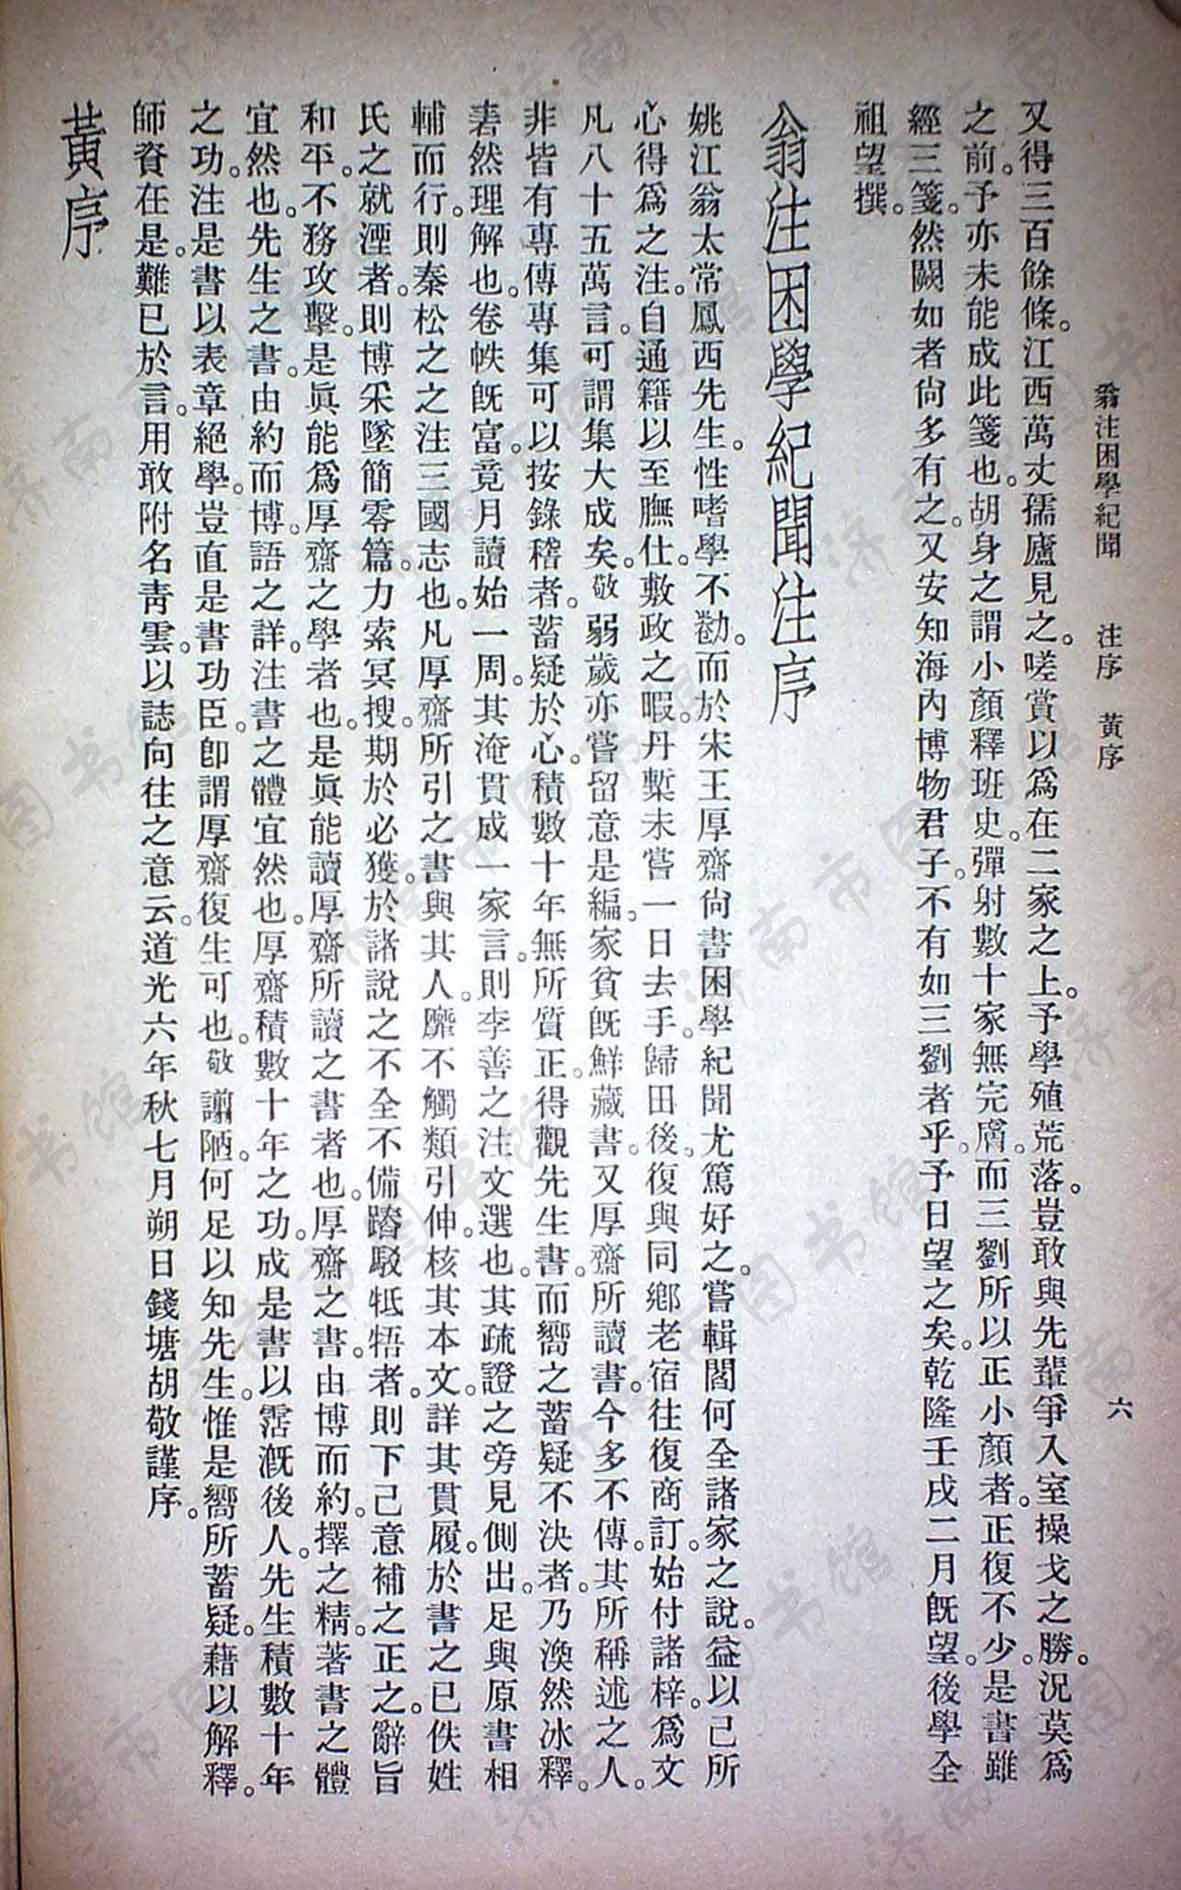 翁注困學紀聞　注序　黃序　六
又得三百餘條。江西萬丈孺廬見之。嗟賞以爲在二家之上。予學殖荒落。豈敢與先輩爭入室操戈之勝。況莫爲
之前。予亦未能成此箋也。胡身之謂小顏釋班史。彈射數十家無完膚。而三劉所以正小顏者。正復不少。是書雖
經三箋。然闕如者尙多有之。又安知海內博物君子。不有如三劉者乎。予日望之矣。乾隆壬戌二月旣望。後學全
祖望撰。
翁注困學紀聞注序
姚江翁太常鳳西先生。性嗜學不勌。而於宋王厚齋尙書困學紀聞尤篤好之。嘗輯閻何全諸家之說。益以己所
心得爲之注。自通籍以至膴仕。敷政之暇。丹槧未嘗一日去手。歸田後。復與同鄉老宿往復商訂。始付諸梓。爲文
凡八十五萬言。可謂集大成矣。敬弱歲亦嘗留意是編。家貧旣鮮藏書。又厚齋所讀書。今多不傳。其所稱述之人。
非皆有專傳專集可以按錄稽者。蓄疑於心。積數十年無所質正。得觀先生書。而嚮之蓄疑不決者。乃渙然冰釋。
砉然理解也。卷帙旣富。竟月讀始一周。其淹貫成一家言。則李善之注文選也。其疏證之旁見側出。足與原書相
輔而行。則秦松之之注三國志也。凡厚齋所引之書與其人。靡不觸類引伸。核其本文。詳其貫履。於書之已佚姓
氏之就湮者。則博采墜簡零篇。力索冥搜。期於必獲。於諸說之不全不備踳駁牴牾者。則下己意補之正之。辭旨
和平。不務攻擊。是眞能爲厚齋之學者也。是眞能讀厚齋所讀之書者也。厚齋之書。由博而約。擇之精。著書之體
宜然也。先生之書。由約而博。語之詳。注書之體宜然也。厚齋積數十年之功。成是書以霑漑後人。先生積數十年
之功。注是書以表章絕學。豈直是書功臣。卽謂厚齋復生可也。敬謭陋。何足以知先生。惟是嚮所蓄疑。藉以解釋。
師資在是。難已於言。用敢附名靑雲。以誌向往之意云。道光六年秋七月朔日錢塘胡敬謹序。
黃序